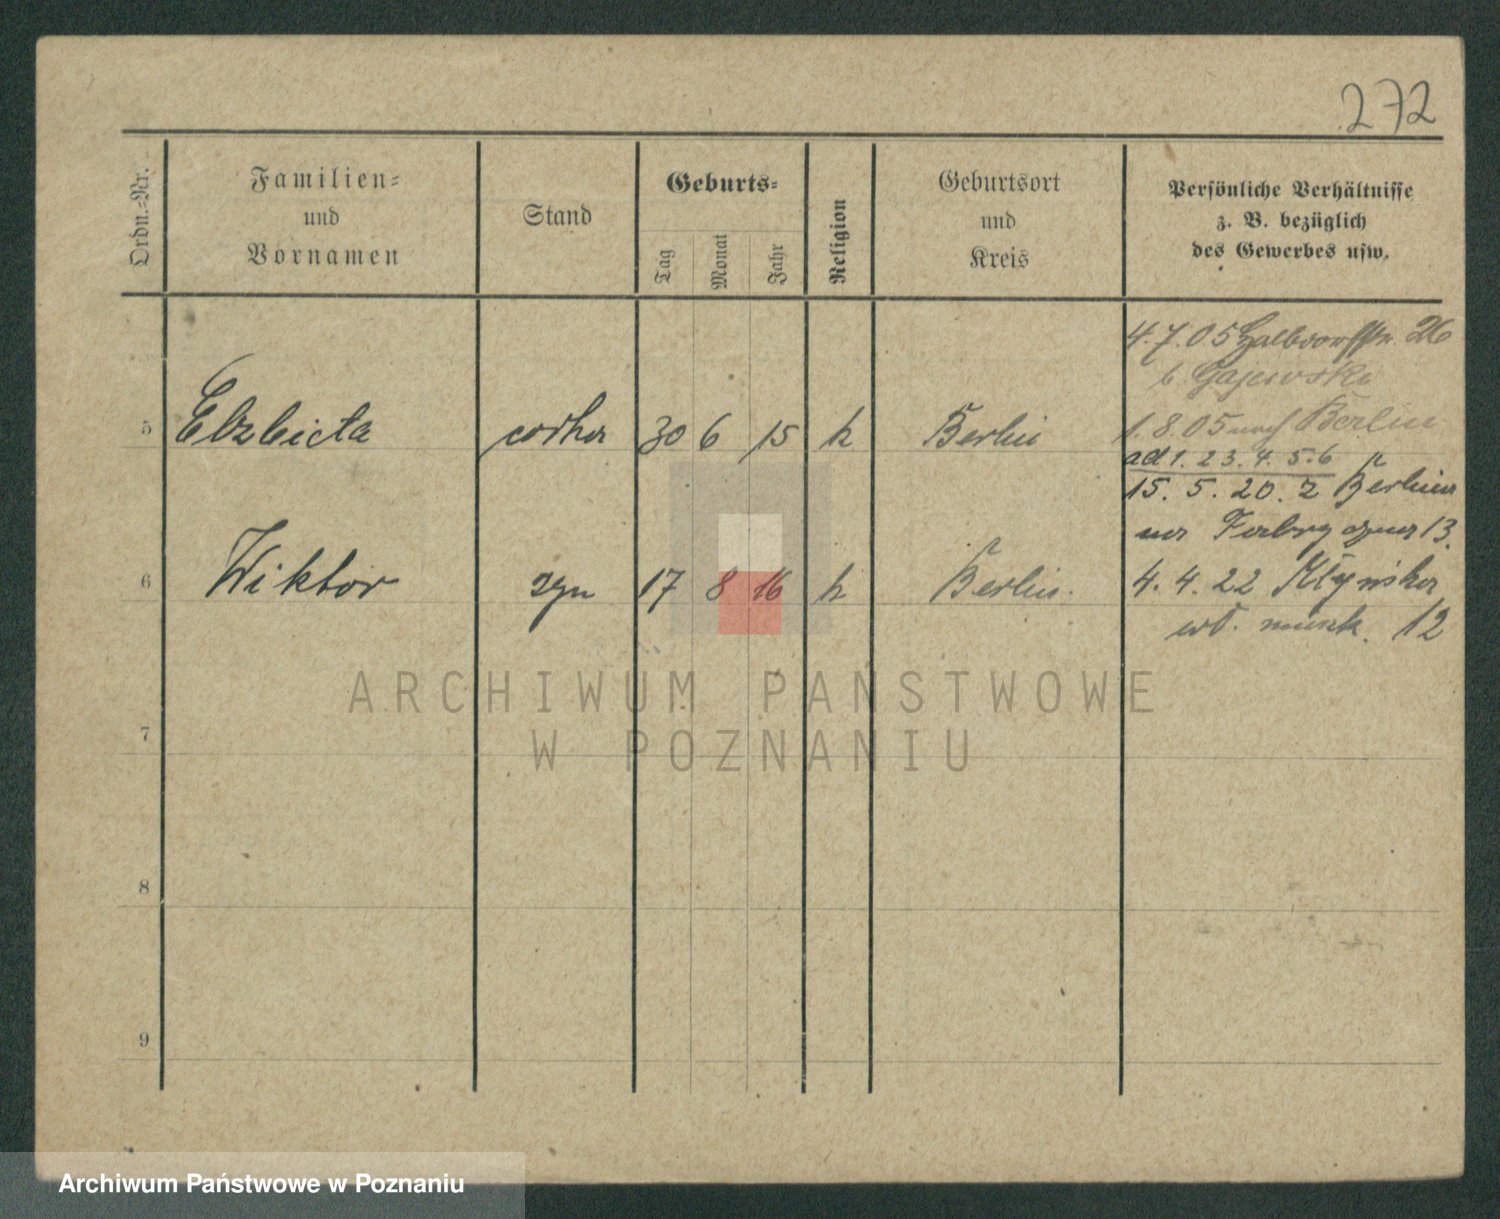 272
Ordn.-Nr.
Familien-
und
Vornamen
Stand
Geburts-
Tag
Monat
Jahr
Religion
Geburtsort
und
Kreis
Persönliche Verhältnisse
z. B. bezüglich
des Gewerbes usw.
4.7.05 Halbdorfstr. 26
b. Gajewski
5 Elzbieta córka 30 6 15 k Berlin
1.8.05 nach Berlin
ad 1. 2 3. 4. 5. 6
15. 5. 20. z Berlina
13.
6 Wiktor syn 17 8 16 k Berlin.
4. 4. 22
12
7
8
9
ARCHIWUM PAŃSTWOWE
W POZNANIU
Archiwum Państwowe w Poznaniu